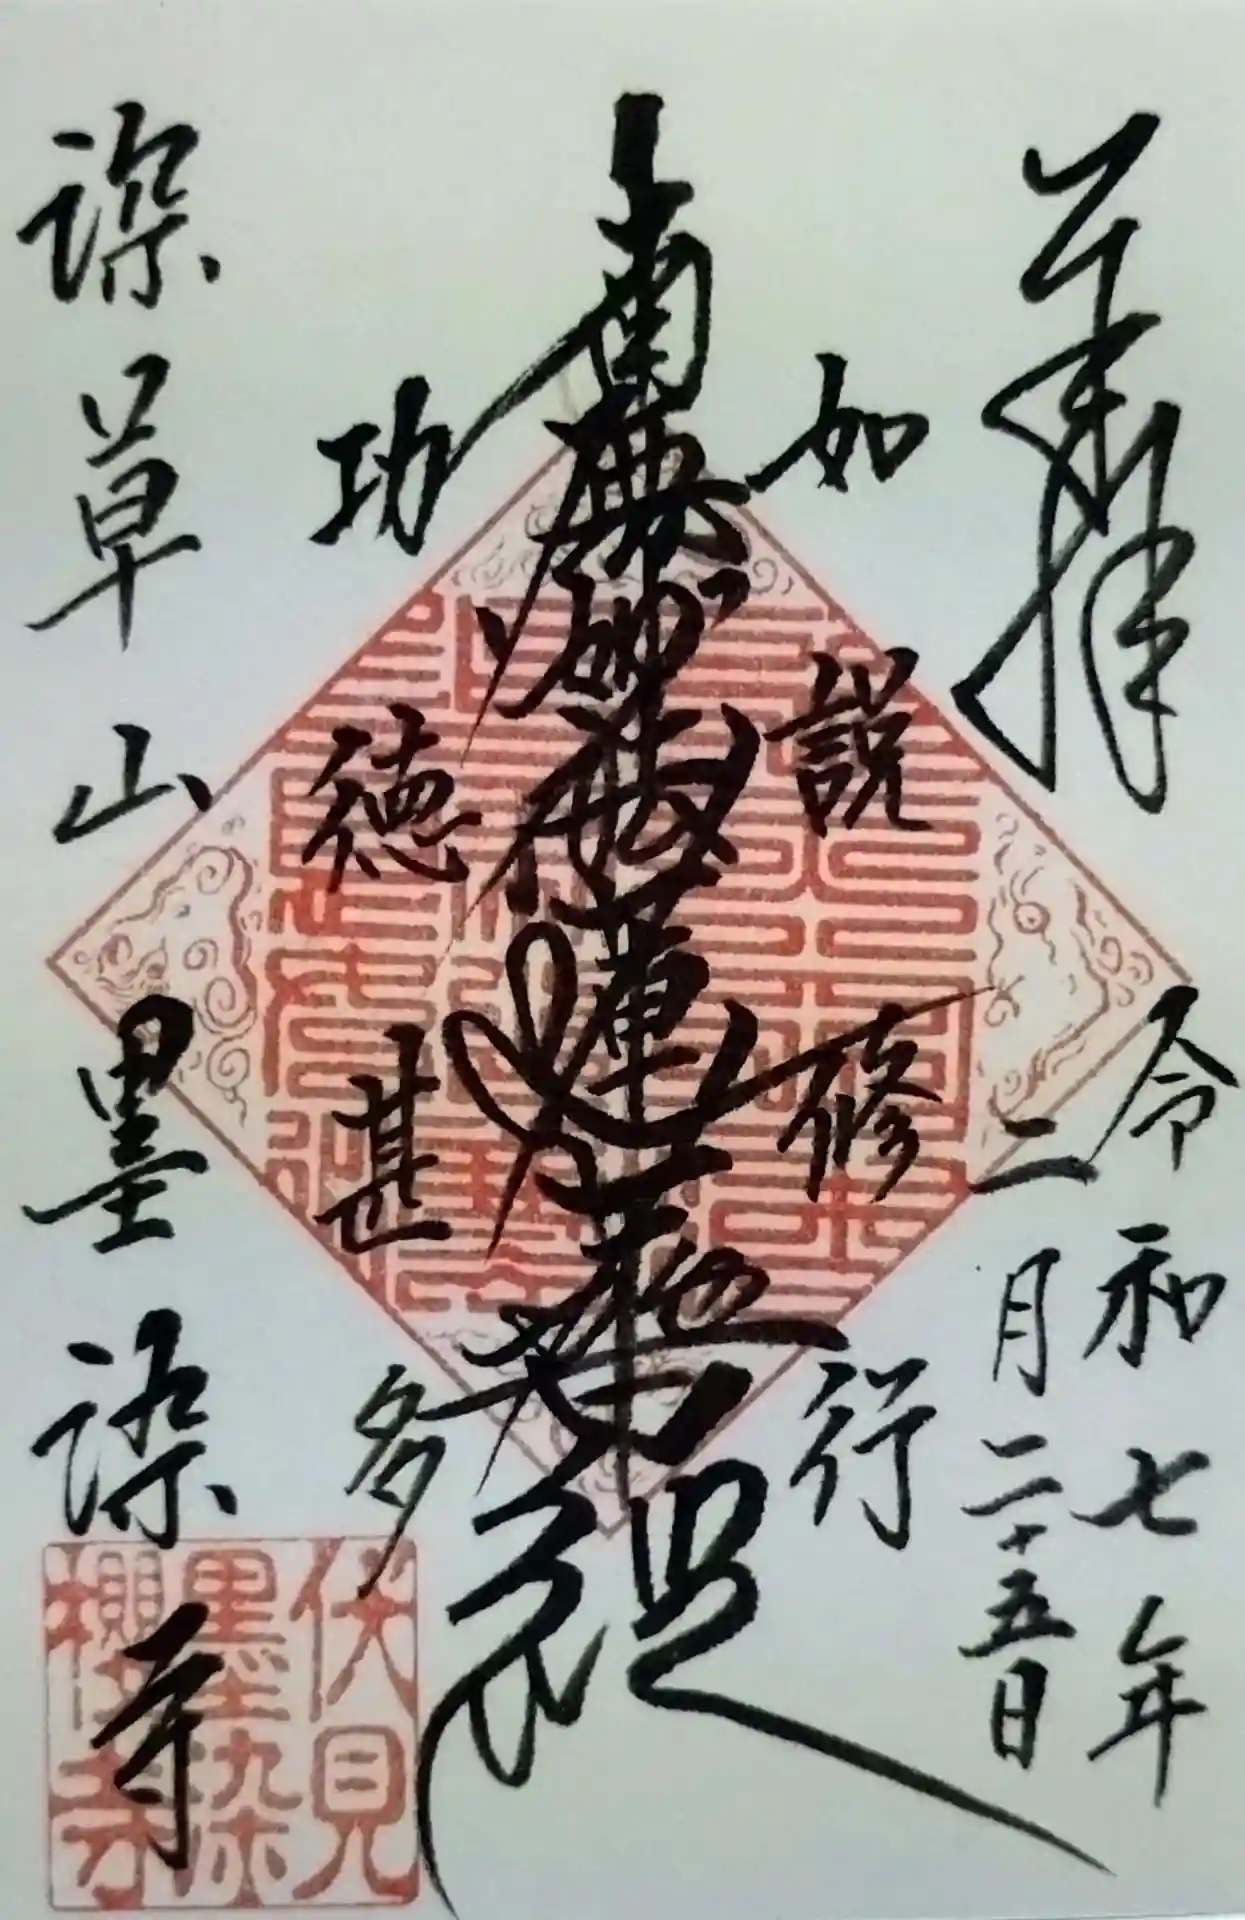 奉拝
令和七年
二月二十五日
如説修行
南無妙法蓮華経
功徳甚多
深草山墨染寺
伏見
墨染
櫻寺